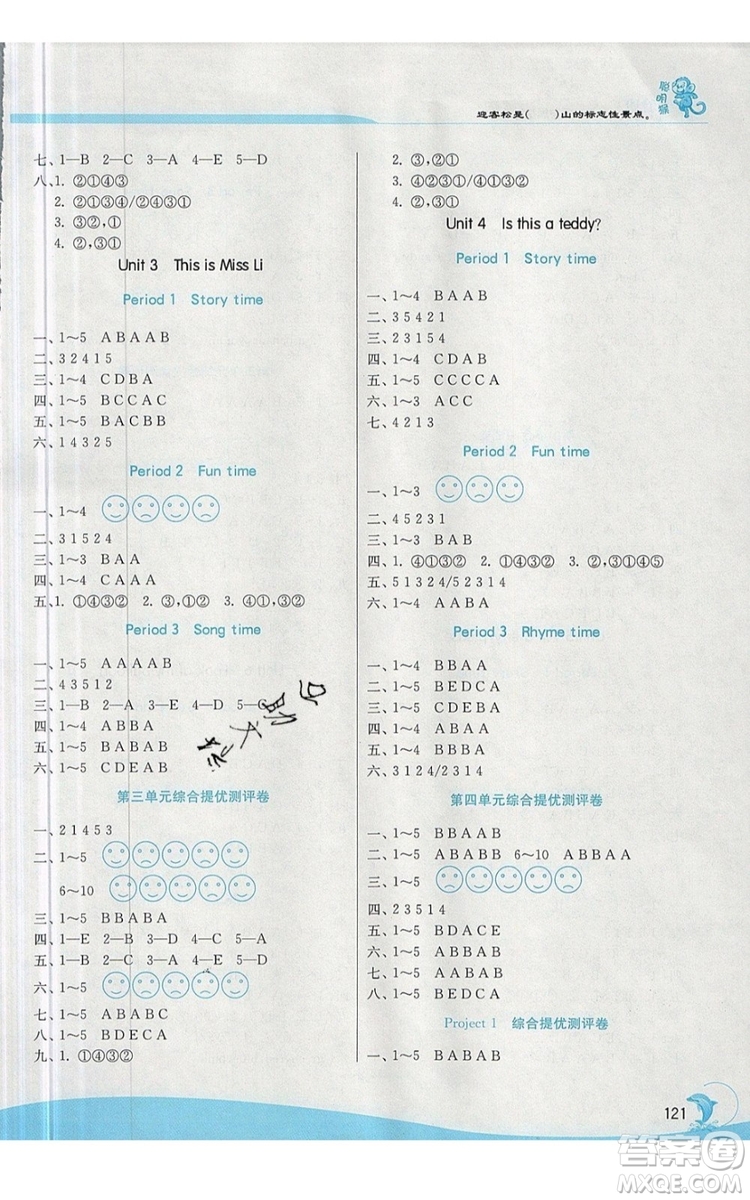 聪明猴
迎客松是(　　)山的标志性景点。
七、1—B 2—C 3—A 4—E 5—D
八、1. ②①④③
2. ②①③④/②④③①
3. ③②,①
4. ②,③①
Unit 3 This is Miss Li
Period 1 Story time
一、1～5 A B A A B
二、3 2 4 1 5
三、1～4 C D B A
四、1～5 B C C A C
五、1～5 B A C B B
六、1 4 3 2 5
Period 2 Fun time
一、1～4
二、3 1 5 2 4
三、1～3 B A A
四、1～4 C A A A
五、1. ①④③② 2. ③,①② 3. ①④③②
Period 3 Song time
一、1～5 A A A A B
二、4 3 5 1 2
三、1—B 2—A 3—E 4—D 5—C
四、1～4 A B B A
五、1～5 B A B A B
六、1～5 C D E A B
第三单元综合提优测评卷
一、2 1 4 5 3
二、1～5
6～10
三、1～5 B B A B A
四、1—E 2—B 3—D 4—C 5—A
五、1—C 2—B 3—A 4—E 5—D
六、1～5
七、1～5 B A B A A
八、1～5 B D E C A
九、1. ①④③②
2. ③,②①
3. ④②③①/②④③①
4. ②,③①
Unit 4 Is this a teddy?
Period 1 Story time
一、1～4 B A A B
二、3 5 4 2 1
三、2 3 1 5 4
四、1～4 C D A B
五、1～5 C C C C A
六、1～3 A C C
七、4 2 1 3
Period 2 Fun time
一、1～3
二、4 5 2 3 1
三、1～3 B A B
四、1. ④①③② 2. ①④③② 3. ②③①④⑤
五、5 1 3 2 4/5 2 3 1 4
六、1～4 B A B A
Period 3 Rhyme time
一、1～4 B B A A
二、1～5 B E D C A
三、1～5 C D E B A
四、1～4 B A B A
五、1～4 B B B A
六、5 1 3 2 4/5 2 3 1 4
第四单元综合提优测评卷
一、1～5 B B B B A
二、1～5 A B A B B 6～10 A B B A A
三、1～5
四、2 3 5 1 4
五、1～5 B D A C E
六、1～5 B B A B A
七、1～5 A A B A B
八、1～5 B A B A A
Project 1 综合提优测评卷
一、1～5 B A B A B
121
答案圈
MXQE.COM